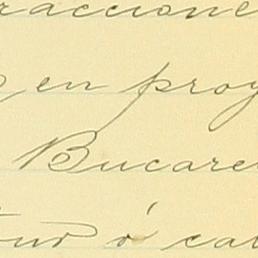 raccione
en proy
Bucare
tud ó cal